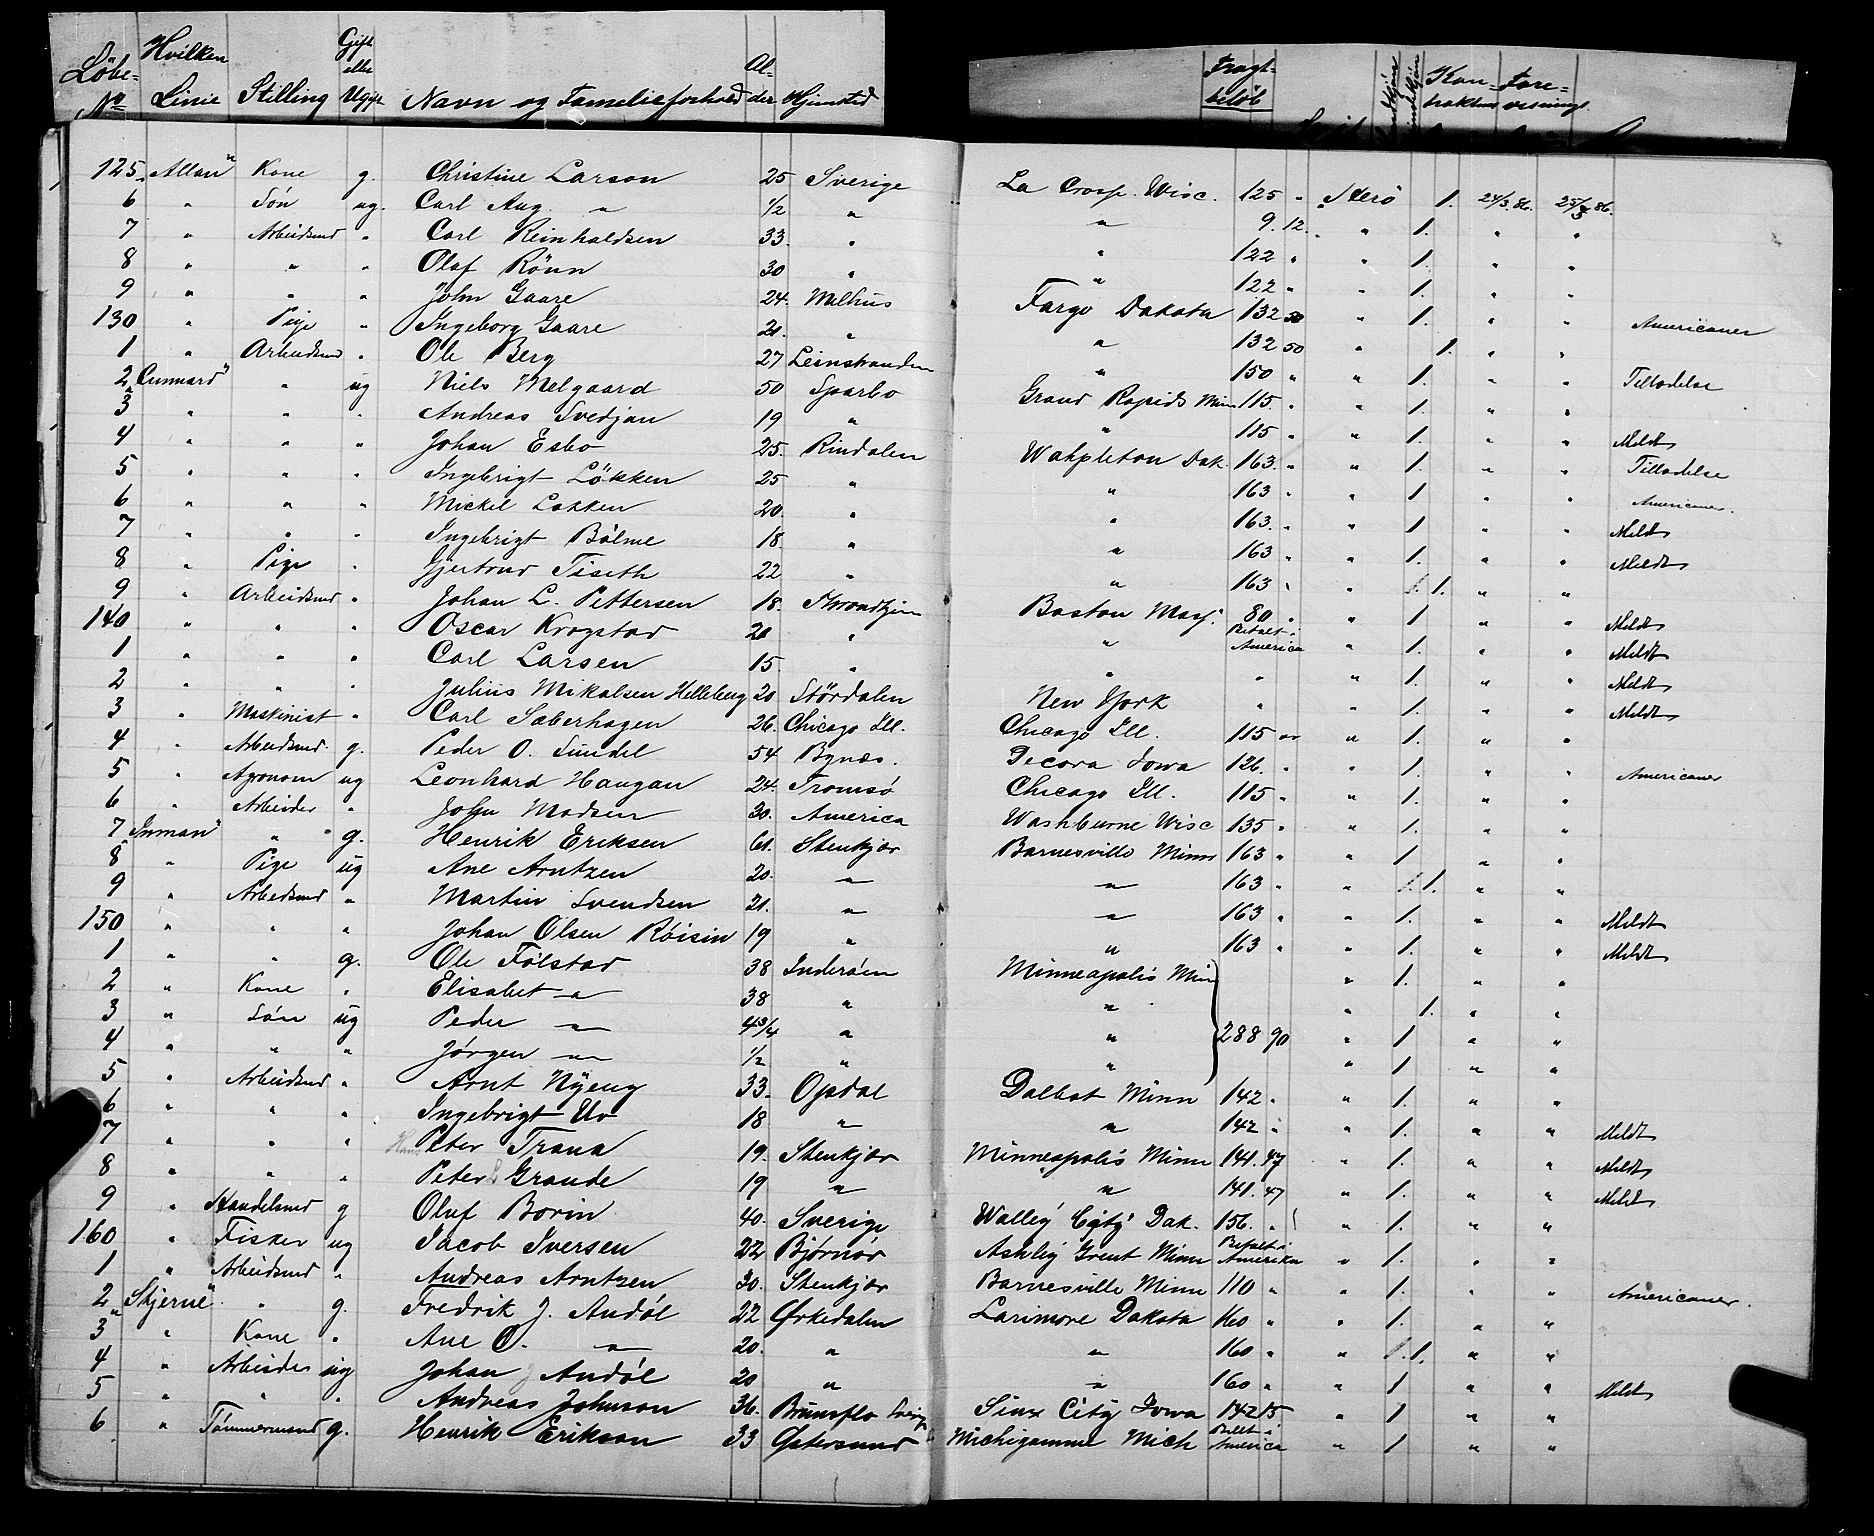 Löbe- No Hvilken Linie Stilling Gift eller Ugift Navn og Familieforhold Al- der Hjemsted Fragt- beløb Kon- traktens Fore- visning
125 "Allan" Kone g. Christine Larson 25 Sverige La Crosse Wisc. 125 " "Herö 1. 24/3.86. 25/3 86.
6 " Sön ug. Carl Aug. " 1/2 " " 9. 12. " 1. " "
7 " Arbeidsmd " Carl Reinholdsen 33. " " 122 " " 1. " "
8 " " " Olaf Rönn 30 " " 122 " " 1. " "
9 " " " John Gaare 24. Melhus Fargo Dakota 132 50 " 1. " " Americaner
130 " Pige " Ingeborg Gaare 21. " " 132 50 " 1. " "
1 " Arbeidsmd " Ole Berg 27 Leinstranden " 150 " " 1. " " Tilladelse
2 "Cunnard" " ug Niels Melgaard 50 Sparbo Grand Rapids Minn 115. " " 1. " "
3 " " " Andreas Svedjan 19 " " 115 " " 1. " " Meldt
4 " " " Johan Esbo 25. Rindalen Wahpleton Dak. 163. " " 1. " " Tilladelse
5 " " " Ingebrigt Lökken 25 " " 163 " " 1 " " Americaner.
6 " " " Mickel Løkken 20. " " 163. " " 1 " " Meldt
7 " " " Ingebrigt Bölme 18. " " 163 " " 1. " " Meldt
8 " Pige " Gjertrud Tiseth 22 " " 163 " " 1. " "
9 " Arbeidsmd " Johan L. Pettersen 18. Throndhjem Boston Mass. 80 " " 1 " " Meldt
140 " " " Oscar Krogstad 20 " " Betalt i America " 1. " " Meldt
1 " " " Carl Larsen 15 " " " " 1. " " Meldt
2 " " " Julius Mikalsen Helleberg 20 Stördalen New York " " 1. " " Meldt
3 " Maskinist " Carl Saberhagen 26. Chicago Ill. Chicago Ill. 115 " " 1. " "
4 " Arbeidsmd. g. Peder O. Sundel 54 Bynæs. Decora Iowa 126. " " 1. " " Americaner
5 " Agronom ug Leonhard Haugan 24. Tromsö Chicago Ill. 115 " " 1. " "
6 " Arbeider " John Madsen 30. America Washburne Wisc 135 " " 1. " "
7 "Inman" " g. Henrik Eriksen 61. Stenkjær Barnesville Minn 163 " " 1 " "
8 " Pige ug Ane Arntzen 20. " " 163 " " 1. " "
9 " Arbeidsmd " Martin Svendsen 21. " " 163 " " 1. " " Meldt
150 " " " Johan Olsen Röisin 19 " " 163 " " 1. " " Meldt
1 " " g. Ole Fölstad 38 Inderöen Minneapolis Min " 1. " "
2 " Kone " Elisabet " 38 " " " 1. " "
3 " Sön ug Peder " 4 3/4 " " 288 90 " 1 " "
4 " " " Jörgen " 1/2 " " " 1 " "
5 " Arbeidsmd " Arnt Nÿeng 33. Opdal Dalbot Minn 142 " " 1. " "
6 " " " Ingebrigt Uv 18 " " 142 " " 1. " " Meldt
7 " " " Hans Peter Trana 19. Stenkjær Minneapolis Minn 141. 47 " 1. " " Meldt
8 " " " Peter Grande 19 " " 141. 47 " 1. " " Meldt
9 " Handelsmd g Oluf Borin 40. Sverige Walley City Dak. 156. " " 1. " "
160 " Fisker ug Jacob Iversen 22 Bjørnör Ashley Grent Minn Betalt i Amerika " 1. " "
1 " Arbeidsmd " Andreas Arntzen 30. Stenkjær Barnesville Minn 110 " " 1. " " Americaner.
2 "Stjerne" " g. Fredrik J. Andöl 22 Ørkedalen Larimore Dakota 160 " " 1. " "
3 " Kone " Ane O. " 20. " " 160 " " 1. " "
4 " Arbeider ug Johan Andöl 20 " " 160 " " 1 " " Meldt
5 " " " Andreas Johnson 36. Brunsflo Sverig Siux City Iowa 142 15 " 1 " "
6 " Tömmermand g. Henrik Erikson 33 Østersund Michigamme Mich Betlt i America " 1 " "